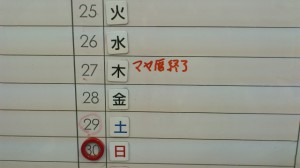 25 火
26 水
27 木 マヤ暦終了
28 金
29 土
30 日